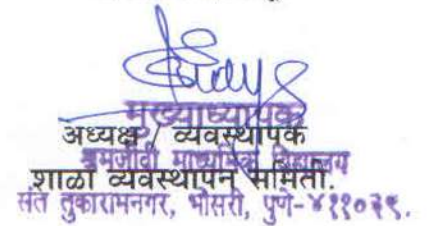 मुख्याध्यापक
अध्यक्ष / व्यवस्थापक
श्रमजीवी माध्यमिक विद्यालय
शाळा व्यवस्थापन समिती.
संत तुकारामनगर, भोसरी, पुणे-४११०३९.